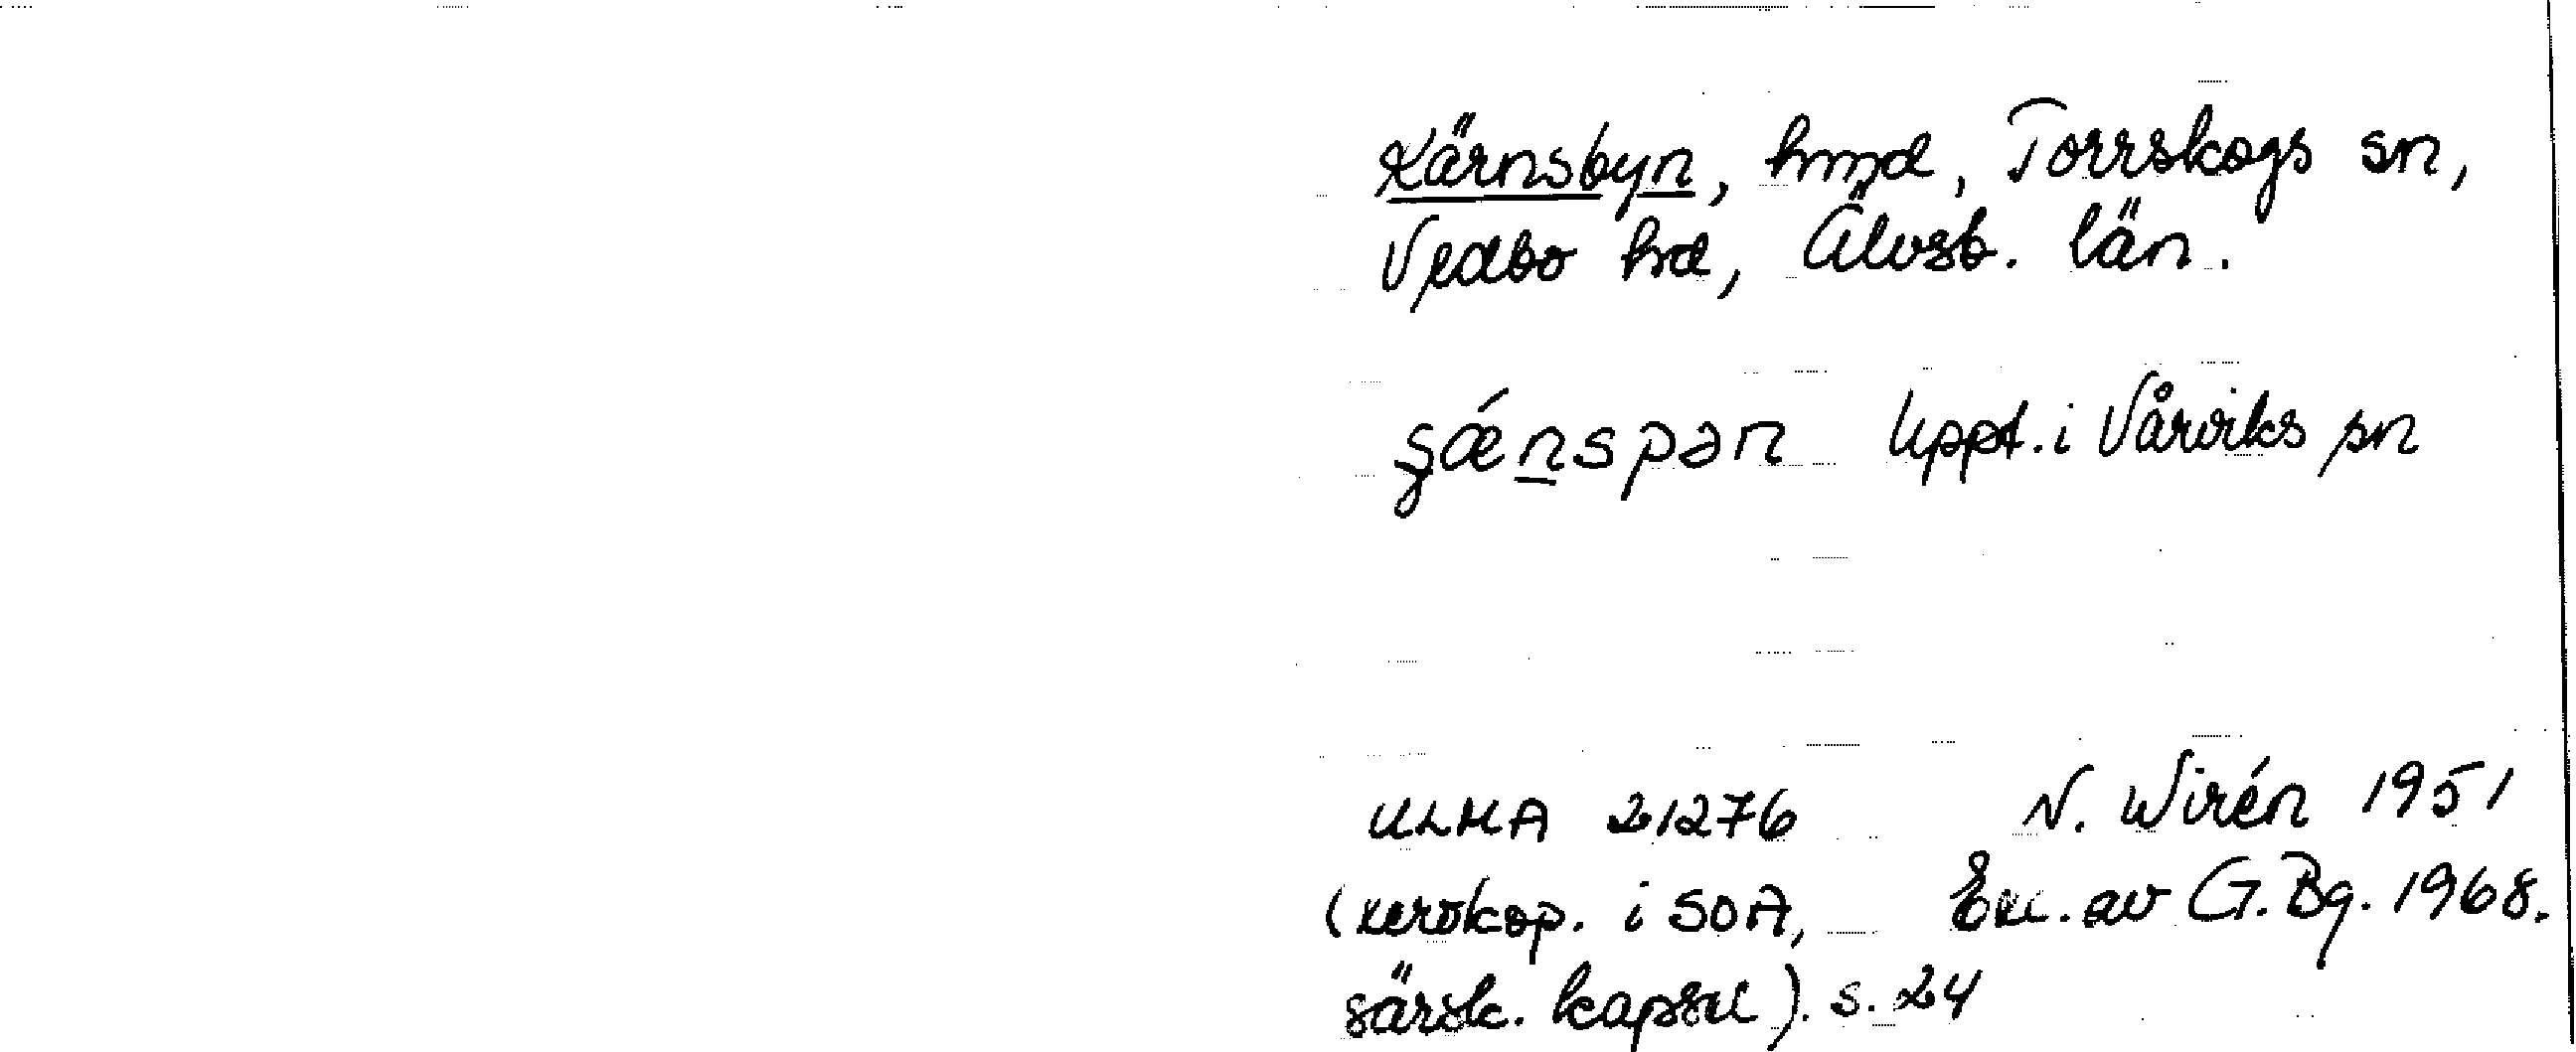 Kärnsbyn, hmd, Torrskogs sn,
Vedbo hd, Älvsb. län.
Uppt. i Vårviks sn
ULMA 21276 N. Wirén 1951
(xerokop. i SOA, Exc. av G. Bg. 1968.
särsk. kapsel). s. 24